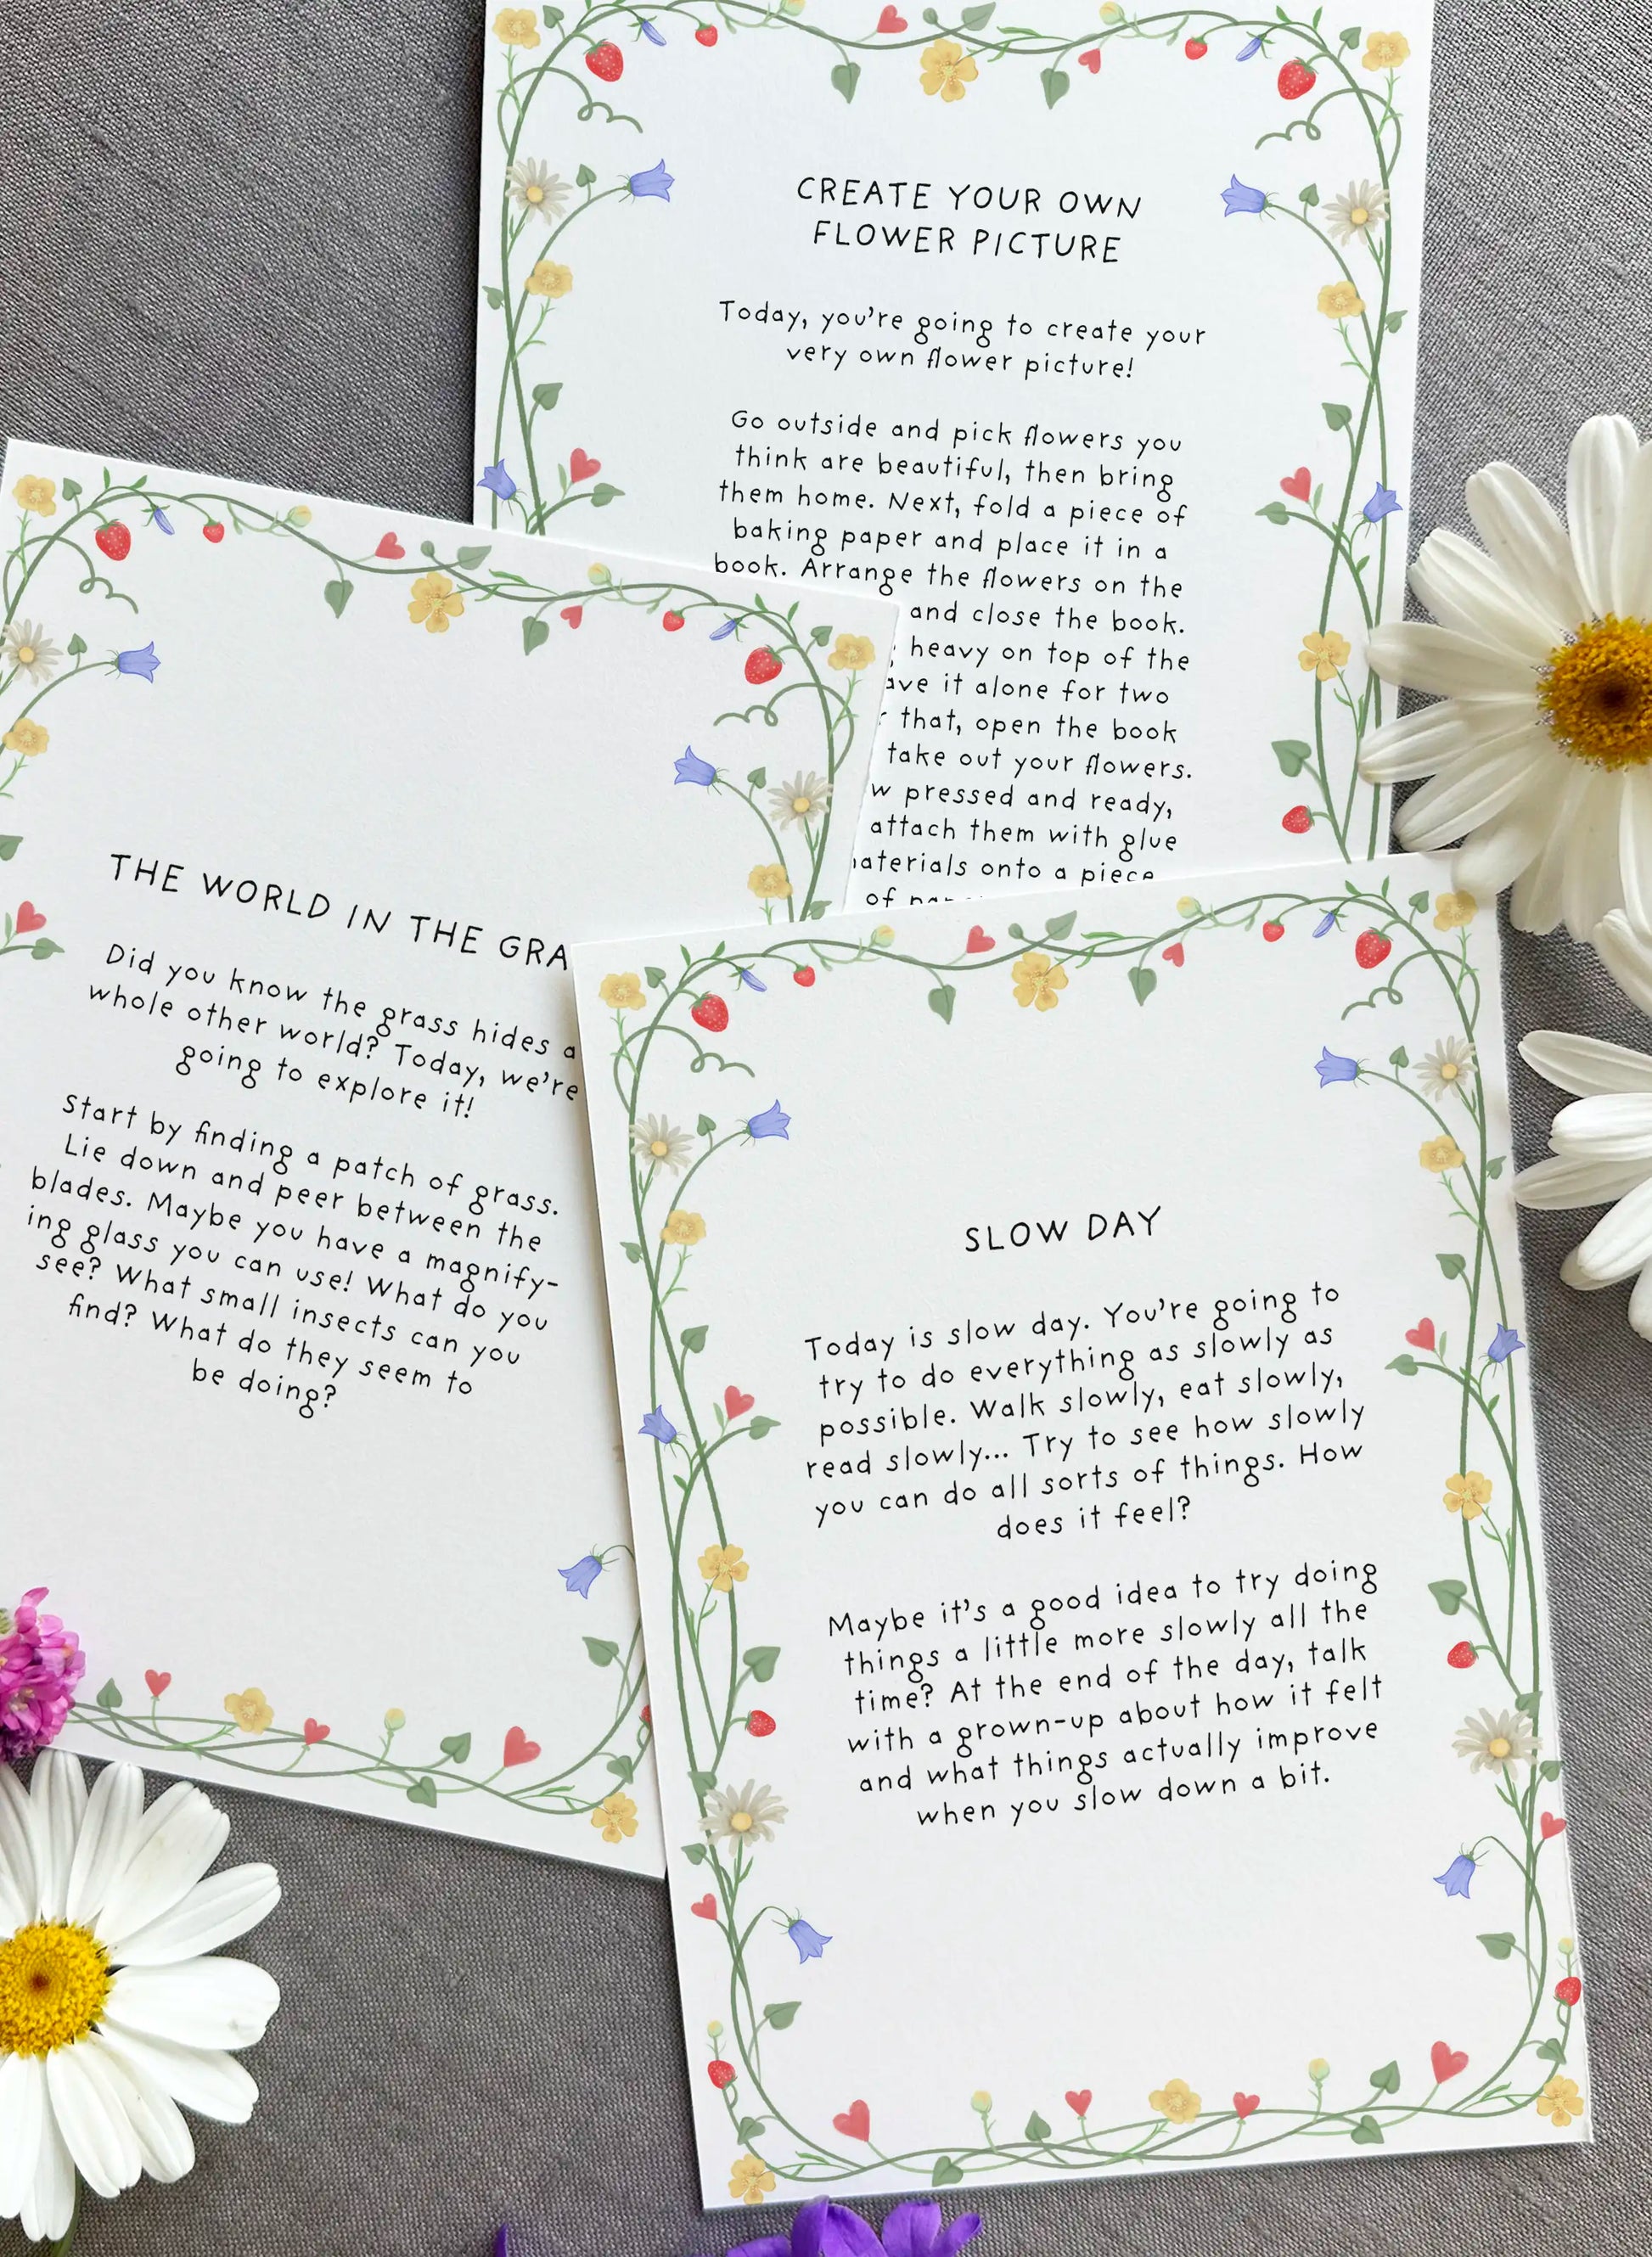 CREATE YOUR OWN
FLOWER PICTURE
Today, you're going to create your
very own flower picture!
Go outside and pick flowers you
think are beautiful, then bring
them home. Next, fold a piece of
baking paper and place it in a
book. Arrange the flowers on the
and close the book.
heavy on top of the
it alone for two
that, open the book
take out your flowers.
pressed and ready,
attach them with glue
onto a piece
of
THE WORLD IN THE
Did you know the grass hides a
whole other world? Today, we're
going to explore it!
Start by finding a patch of grass.
Lie down and peer between the
blades. Maybe you have a magnify-
ing glass you can use! What do you
see? What small insects can you
find? What do they seem to
be doing?
SLOW DAY
Today is slow day. You're going to
try to do everything as slowly as
possible. Walk slowly, eat slowly,
read slowly... Try to see how slowly
you can do all sorts of things. How
does it feel?
Maybe it's a good idea to try doing
things a little more slowly all the
time? At the end of the day, talk
with a grown-up about how it felt
and what things actually improve
when you slow down a bit.